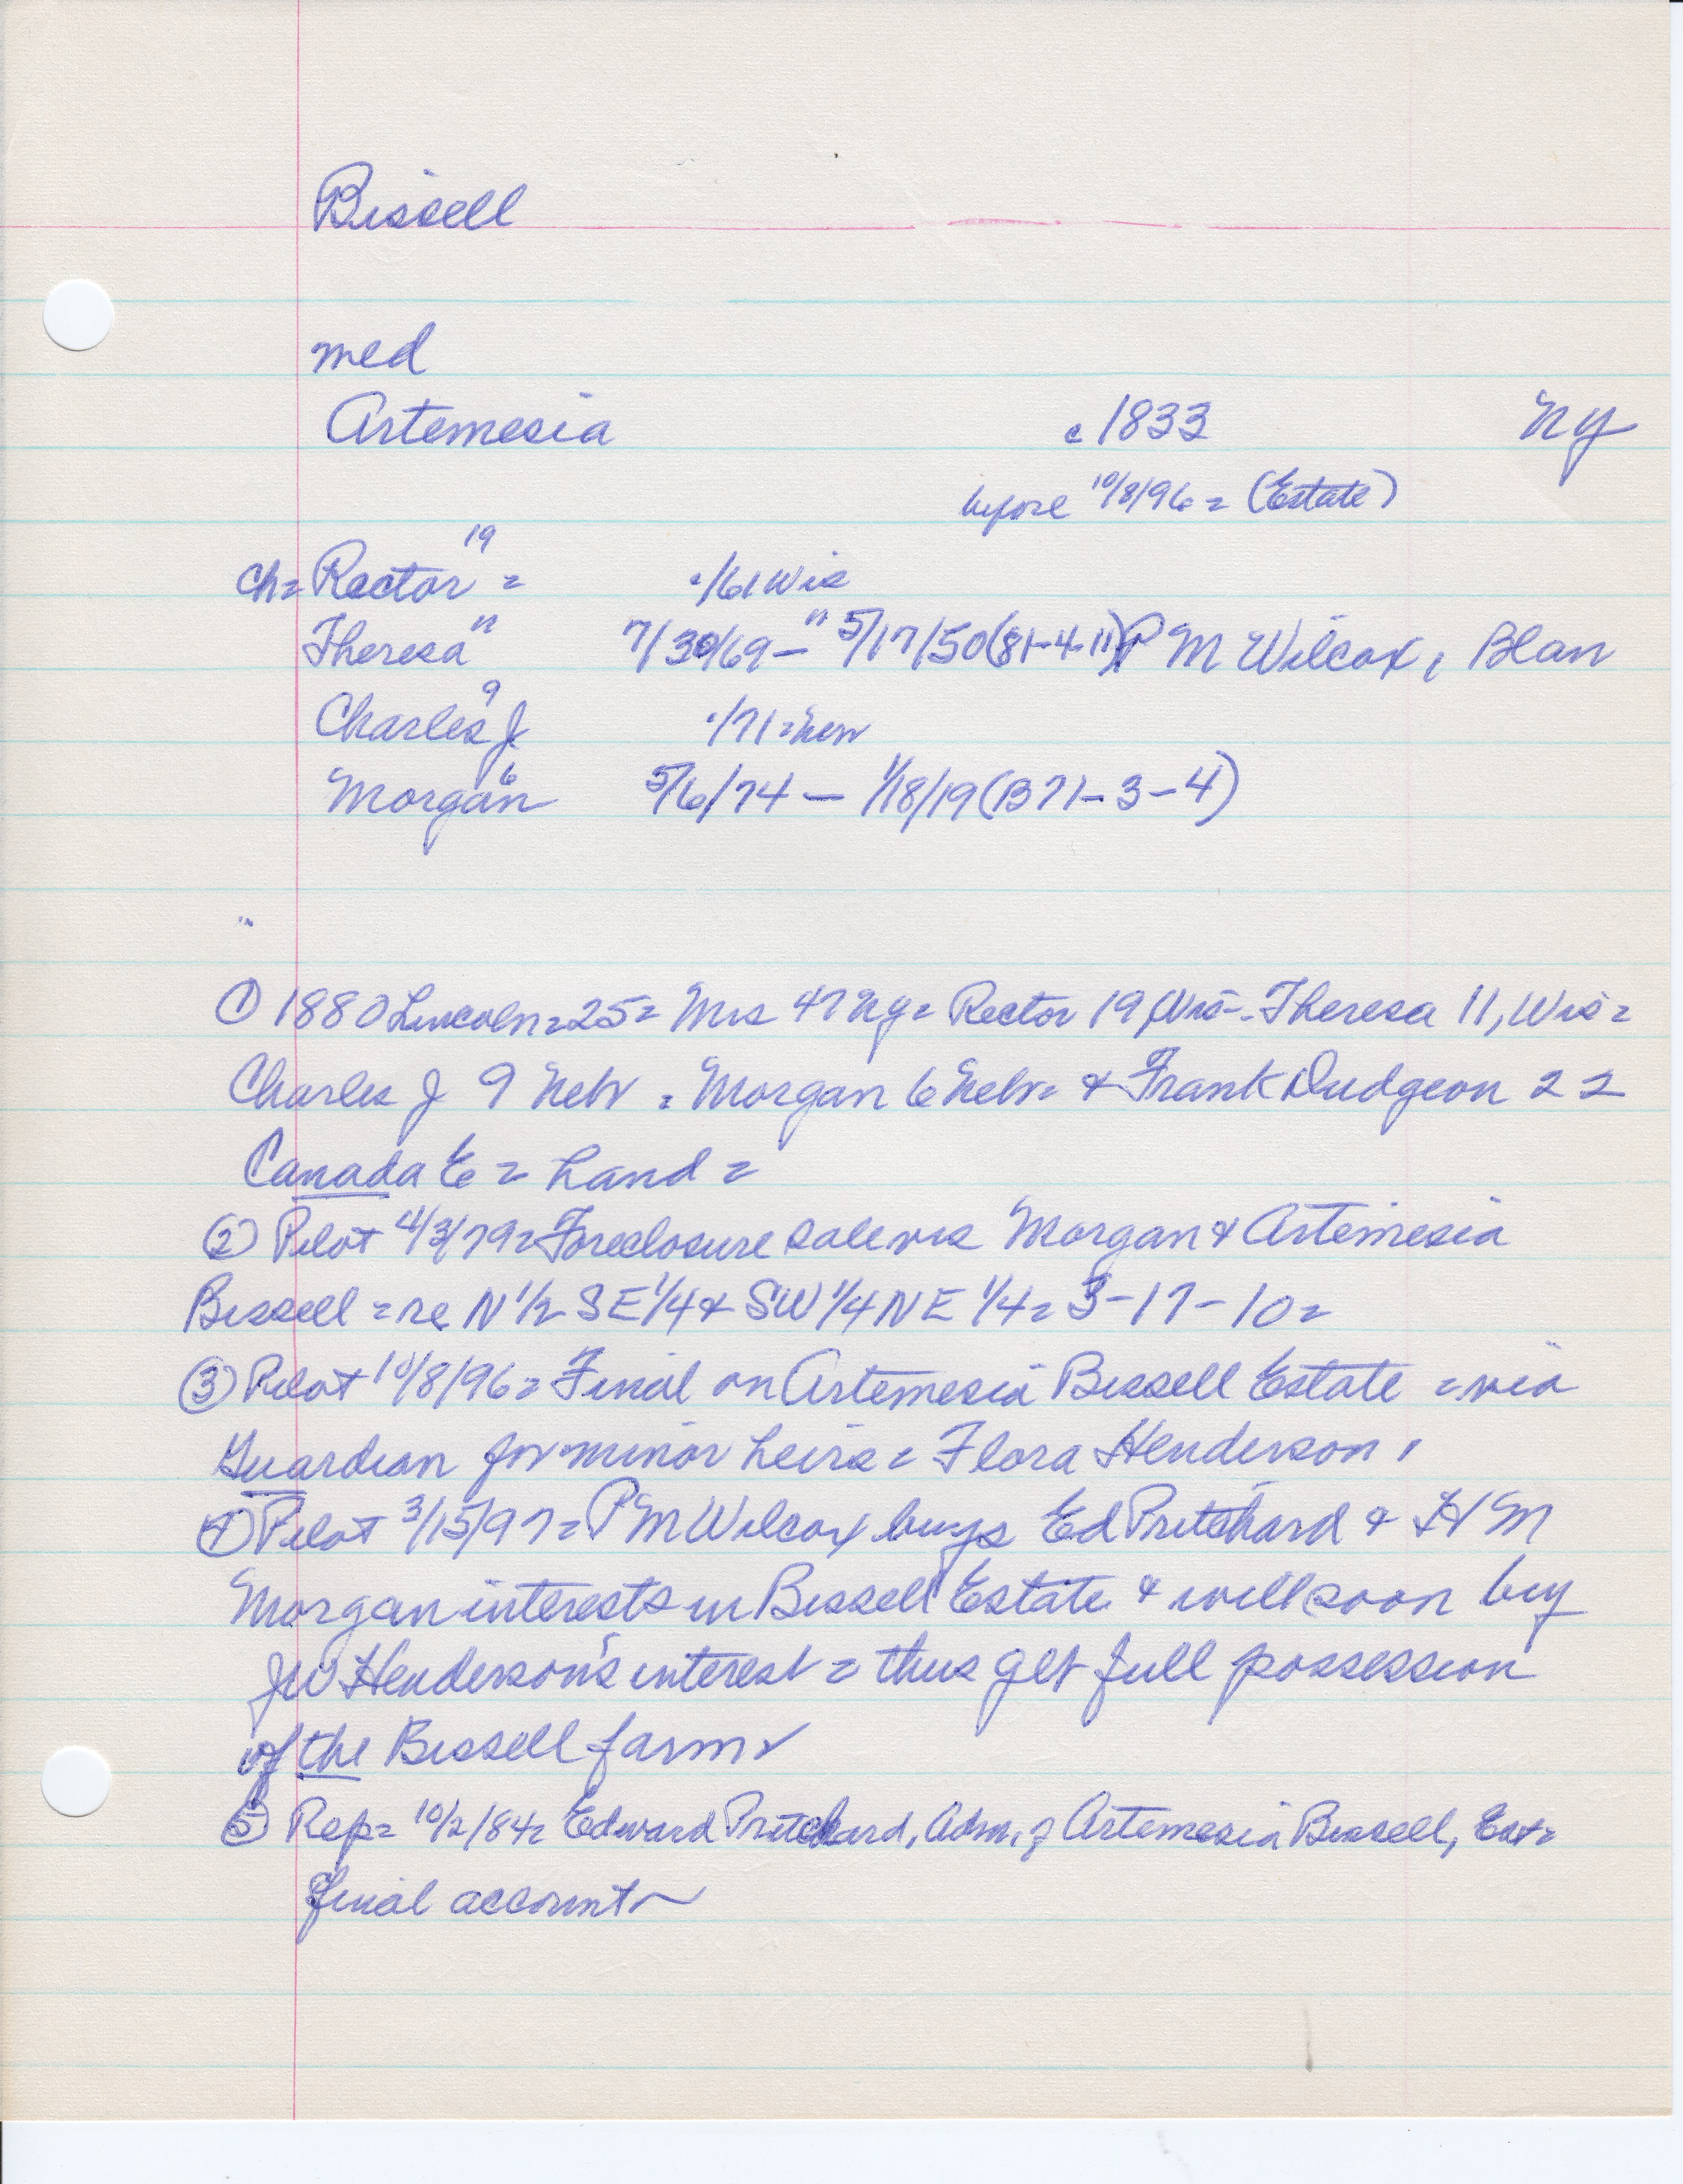 Bissell
med
Artemesia c 1833 NY
before 10/8/96 = (Estate)
19
ch= Rector = c/61 Wis
Theresa 11 7/30/69 – 5/17/50 (81-4-11) P M Wilcox, Blan
9
Charles J c/71 = Neb
6
Morgan 5/6/74 — 1/18/19 (B71-3-4)
① 1880 Lincoln = 25 = Mrs 47 NY = Rector 19, Wis - Theresa 11, Wis =
Charles J 9 Neb = Morgan 6 Neb = & Frank Dudgeon 22
Canada E = hand =
② Pilot 4/3/79 = Foreclosure sale vrs Morgan & Artemesia
Bissell = re N 1/2 SE 1/4 & SW 1/4 NE 1/4 = 3-17-10 =
③ Pilot 10/8/96 = Final on Artemesia Bissell Estate = via
Guardian for minor heirs = Flora Henderson,
④ Pilot 3/15/97 = P M Wilcox buys Ed Pritchard & H M
Morgan interests in Bissell Estate & will soon buy
JW Henderson's interest = thus get full possession
of the Bissell farm
⑤ Rep = 10/2/84 = Edward Pritchard, Adm, of Artemesia Bissell, Est =
final account